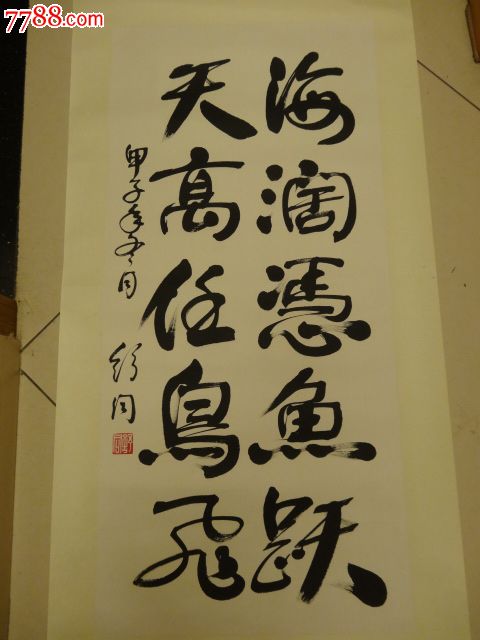 7788.com
海濶憑魚跃
天高任鳥飛
甲子年冬月
舒同